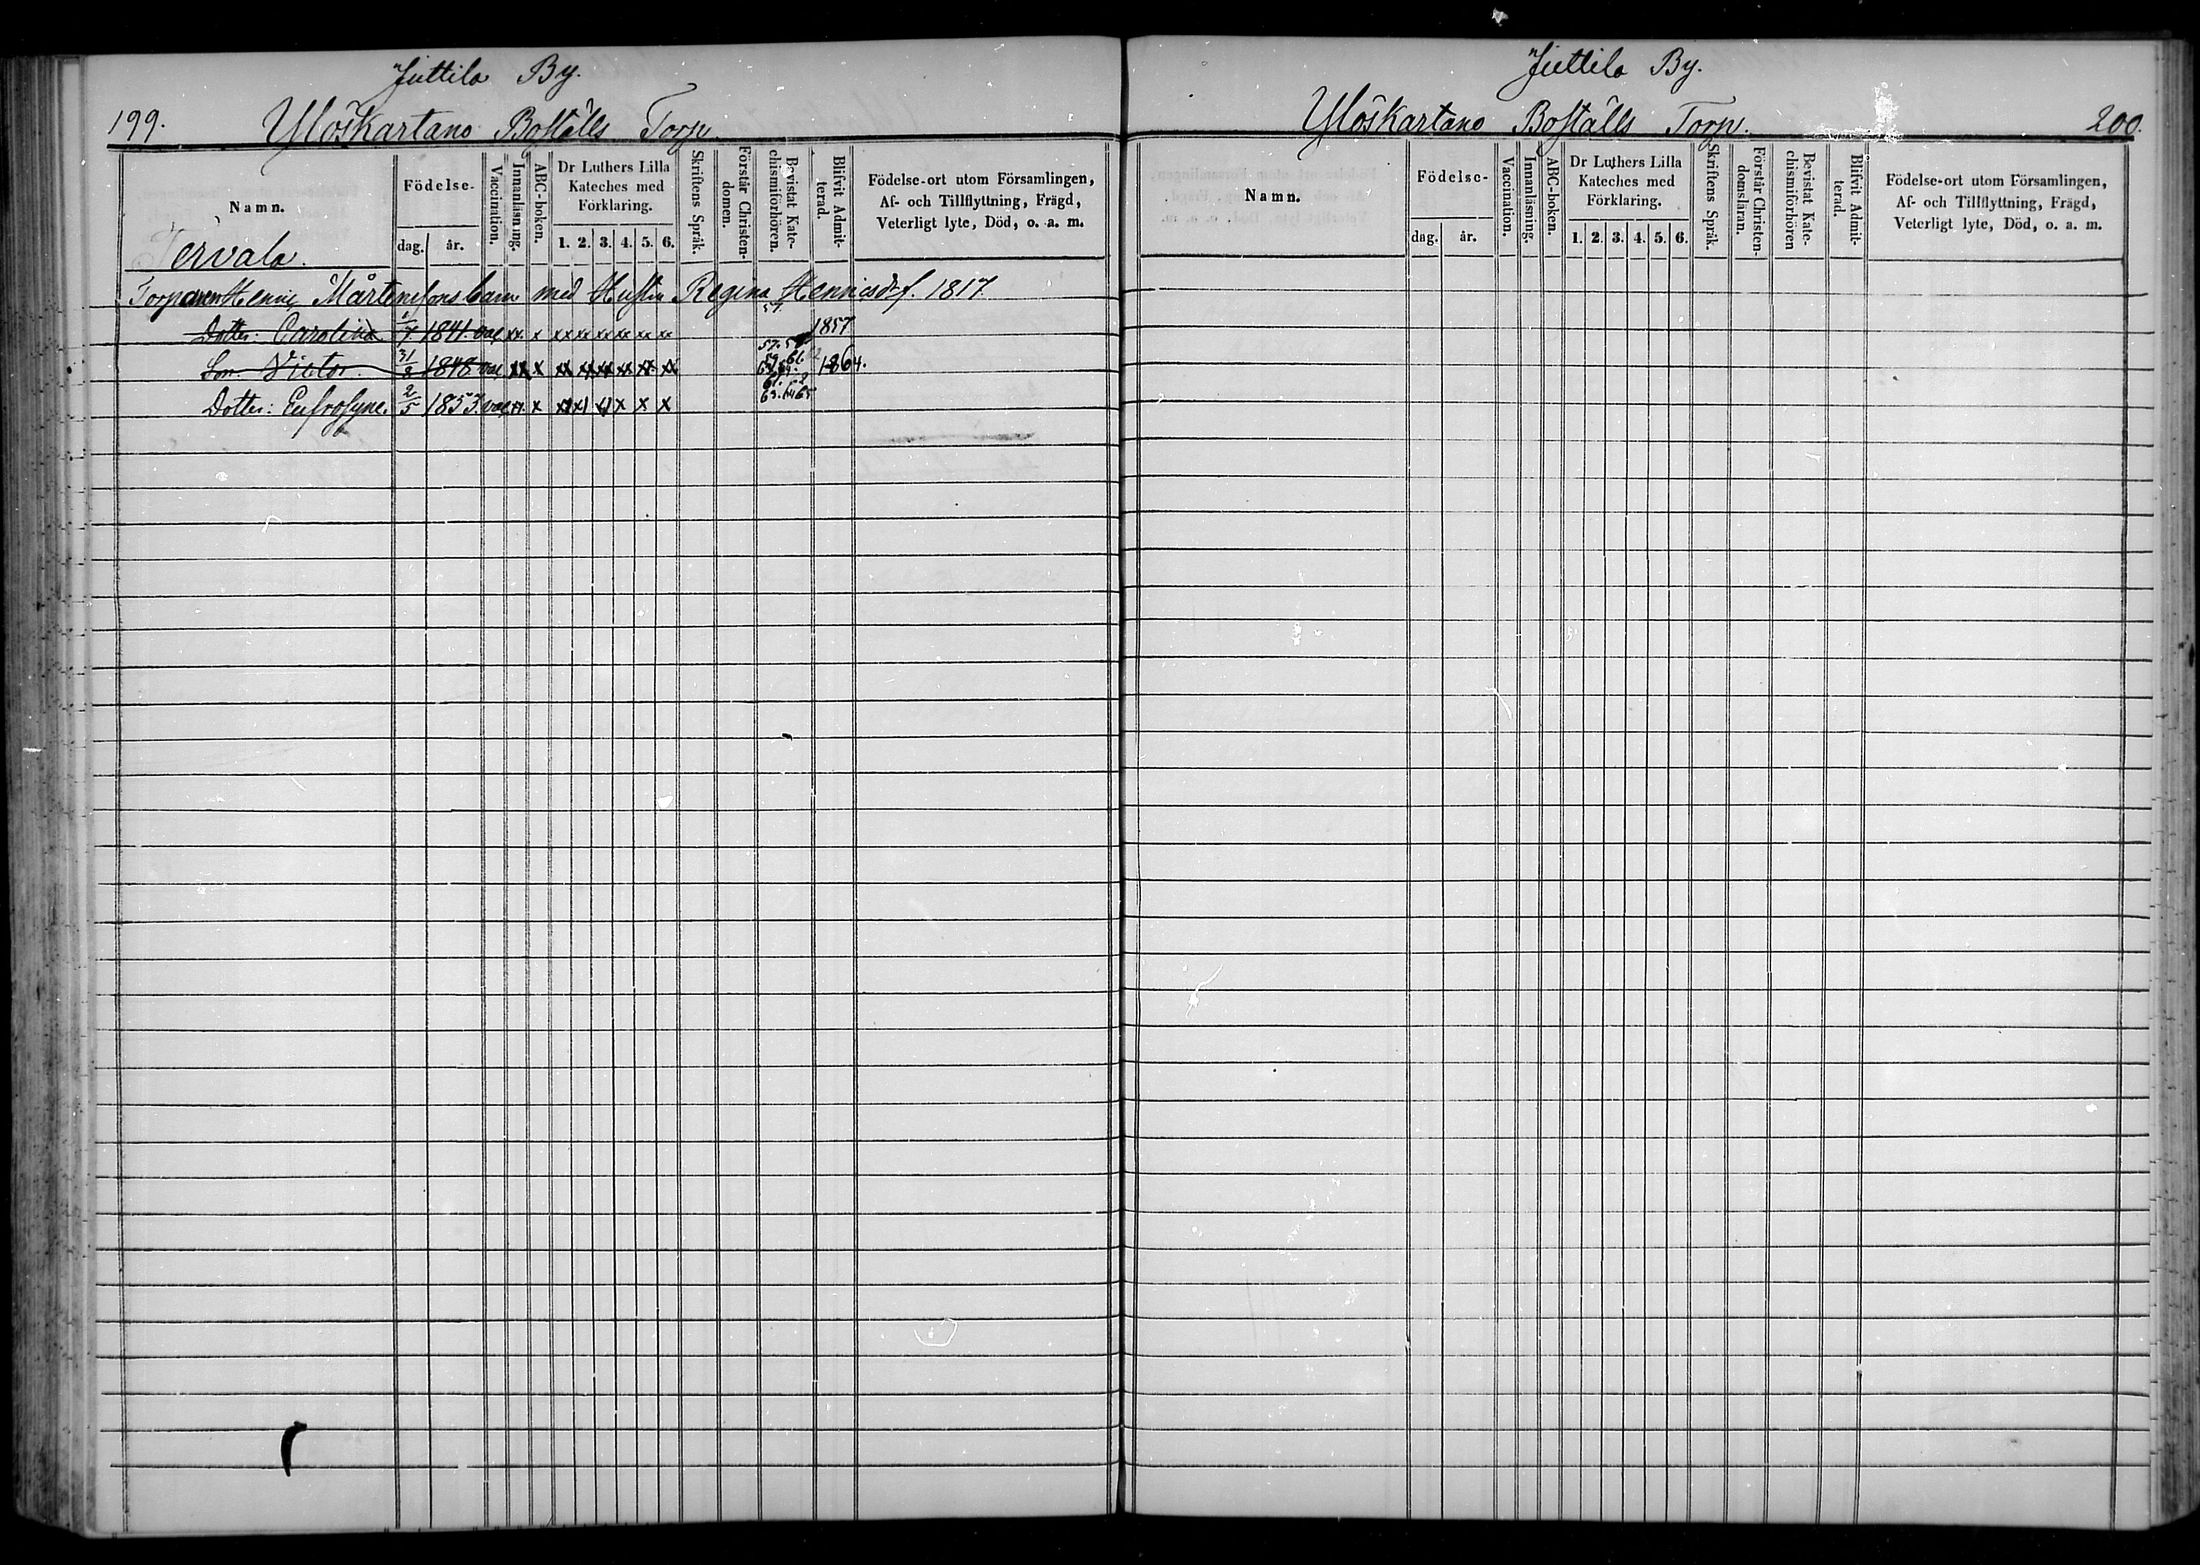 Juttila By.
199. Yloskartano Boställs Torp.
Namn.
Födelse-
dag. år.
Vaccination.
Innanläsning.
ABC-boken.
Dr Luthers Lilla
Kateches med
Förklaring.
1. 2. 3. 4. 5. 6.
Skriftens Språk.
Förstår Christen-
domen.
Bevistat Kate-
chismiförhören.
Blifvit Admit-
terad.
Födelse-ort utom Församlingen,
Af- och Tillflyttning, Frägd,
Veterligt lyte, Död, o. a. m.
Tervala.
Torparen Henric Mårtenssons barn med Hustru Regina Henricsdr f. 1817.
Dotter: Carolina 1/7 1841. vac. xx x xx xx xx xx xx xx 57. 1857
Son Victor. 1848 vac xx x xx xx xx xx xx xx 1864.
Dotter: Eufrosyne. 2/5 1853. vac x x x x x
Juttila By.
Yloskartano Boställs Torp. 200.
Namn.
Födelse-
dag. år.
Vaccination.
Innanläsning.
ABC-boken.
Dr Luthers Lilla
Kateches med
Förklaring.
1. 2. 3. 4. 5. 6.
Skriftens Språk.
Förstår Christen-
domsläran.
Bevistat Kate-
chismiförhören
Blifvit Admit-
terad.
Födelse-ort utom Församlingen,
Af- och Tillflyttning, Frägd,
Veterligt lyte, Död, o. a. m.